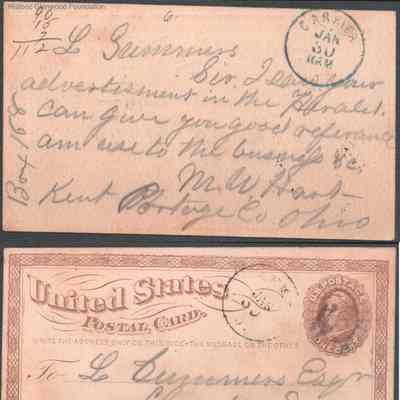 Historic Glenwood Foundation
6
90
15
7
112
CARRIER
JAN
30
8AM
L Summers
Sir I saw your
advertisment in the Herald.
can give you good referance
am use to the busness &c.
M. W. Hart
Kent Portage Co Ohio
Box 168
United States
POSTAL CARD.
WRITE THE ADDRESS ON THIS SIDE - THE MESSAGE ON THE OTHER
JAN
30
U.S. POSTAGE
ONE CENT
To L Summers Esqr